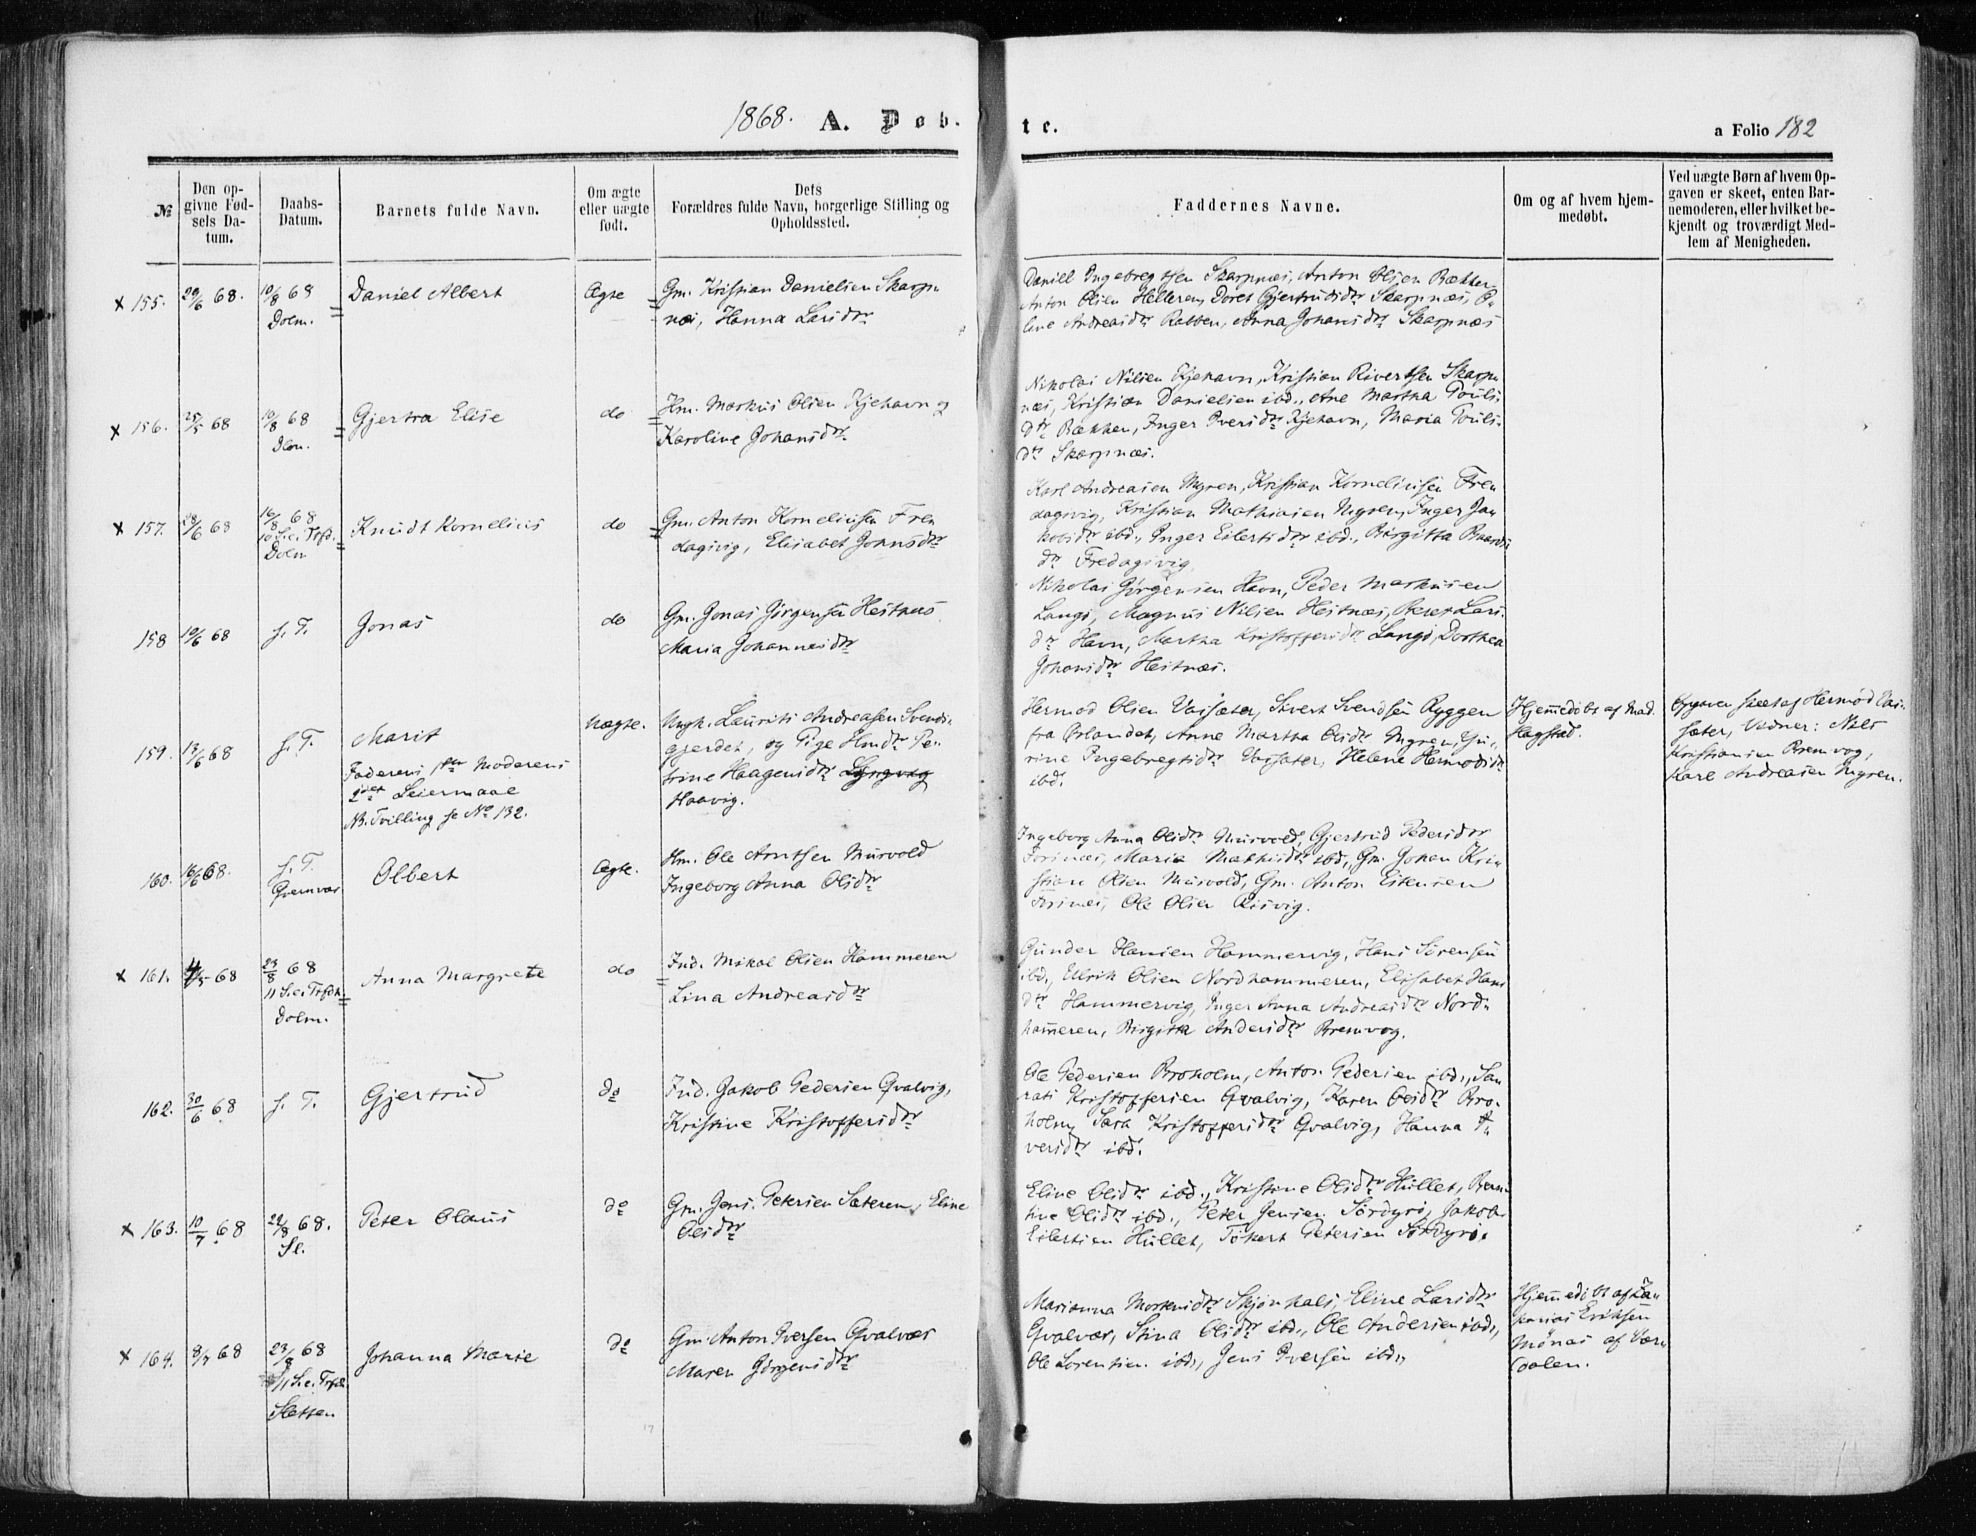 1868. A. Døb-
te.
a Folio 182
№
Den op-
givne Fød-
sels Da-
tum.
Daabs-
Datum.
Barnets fulde Navn.
Om ægte
eller uægte
født.
Dets
Forældres fulde Navn, borgerlige Stilling og
Opholdssted.
Faddernes Navne.
Om og af hvem hjem-
medøbt.
Ved uægte Børn af hvem Op-
gaven er skeet, enten Bar-
nemoderen, eller hvilket be-
kjendt og troværdigt Med-
lem af Menigheden.
x 155. 29/6 68. 10/8 68
Dolm.
Daniel Albert
Ægte
Gm. Kristian Danielsen Skarp-
næs, Hanna Larsdtr
Daniel Ingebregtsen Skarpnæs, Anton Olsen Bækken
Anton Olsen Helleren, Doret Gjertrudsdtr Skarpnæs, O-
line Andreasdtr Rabben, Anna Johansdtr Skarpnæs
x 156. 25/5 68 10/8 68
Dlm.
Gjertra Elise
do
Hm. Markus Olsen Kjehavn og
Karoline Johansdtr
Nikolai Nilsen Kjehavn, Kristian Sivertsen Skarp-
næs, Kristian Danielsen ibd., Ane Martha Pouls-
dtr Bækken, Inger Iversdtr Kjehavn, Maria Pouls-
dtr Skarpnæs.
x 157. 28/6 68 16/8 68
10 S.e. Trfd.
Dolm
Knudt Kornelius
do
Gm. Anton Kornelius̄en Fre-
dagsvig, Elisabet Johnsdtr
Karl Andreasen Myren, Kristian Korneliusen Fre-
dagsvig, Kristian Mathiasen Myren, Inger Ja-
kobsdtr ibd., Inger Eilertsdtr ibd., Birgitta Baards-
dtr Fredagsvig
158 10/6 68 s. T.
Jonas
do
Gm. Jonas Jørgensen Hestnes
Maria Johannesdtr
Nikolai Jørgensen Havn, Peder Markussen
Langø, Magnus Nilsen Hestnæs, Beret Lars-
dtr Havn, Martha Kristoffersdtr Langø, Dorthea
Johansdtr Hestnæs.
159. 13/6 68 s. T.
Marit
Faderens 1ste Moderens
2det Leiermaal
NB. Tvilling se No 132.
Uægte.
Ungk. Laurits Andreasen Svends-
gjerdet, og Pige Hmdtr Pe-
trine Haagensdtr
Haavig.
Hermod Olsen Vaisæter, Sivert Svendsen Ryggen
fra Ørlandet, Anne Martha Olsdtr Myren, Gu-
rine Ingebregtsdtr Vaisæter, Helene Hermodsdtr
ibd.
Hjemmedøbt af Mad.
Hagstad.
Opgaven skeet af Hermod Vai-
sæter, Vidner: Nils
Kristiansen Bremvog,
Karl Andreasen Myren.
160. 16/6 68. s. T.
Qvenvær
Olbert
Ægte.
Hm. Ole Arntsen Mursvold
Ingeborg Anna Olsdtr
Ingeborg Anna Olsdtr Mursvold, Gjertrud Pedersdtr
Forsnæs, Maria Mathisdtr ibd., Gm. Johan Kri-
stian Olsen Mursvold, Gm. Anton Estensen
Forsnes, Ole Olsen Risvig.
x 161. 4/5 68 23/8 68
11 S.e. Trfdh.
Dolm.
Anna Margrete
do
Ind. Mikal Olsen Hammeren
Lina Andreasdtr
Gunder Hansen Hammervig, Hans Sørensen
ibd., Ulrik Olsen Nordhammeren, Elisabet Hans-
dtr Hammervig, Inger Anna Andreasdtr Nord-
hammeren, Birgitta Andersdtr Bremvog.
162. 30/6 68 s. T.
Gjertrud
do
Ind. Jakob Pedersen Qvalvig,
Kristine Kristoffersdtr
Ole Pedersen Broholm, Anton Pedersen ibd., Sa-
rati Kristoffersen Qvalvig, Karen Olsdtr Bro-
holm, Sara Kristoffersdtr Qvalvig, Hanna I-
versdtr ibd.
x 163. 10/7 68 22/8 68.
Sl.
Peter Olaus
do
Gm. Jens Petersen Sæteren, Eline
Olsdtr
Eline Olsdtr ibd., Kristine Olsdtr Hullet, Bern-
tine Olsdtr ibd., Peter Jensen Sørdyrø, Jakob
Eilertsen Hullet, Tøkert Petersen Sørdyrø.
x 164. 8/7 68 23/8 68
11 S.e. Trfdh.
Sletten
Johanna Marie
do
Gm. Anton Iversen Qvalvær
Maren Jørgensdtr
Marianna Mortensdtr Skjønhals, Eline Larsdtr
Qvalvær, Stina Olsdtr ibd., Ole Andersen ibd.,
Ole Lorentsen ibd., Jens Iversen ibd.
Hjemmedøbt af Za-
karias Eriksen
Mønes af Vær-
dalen.